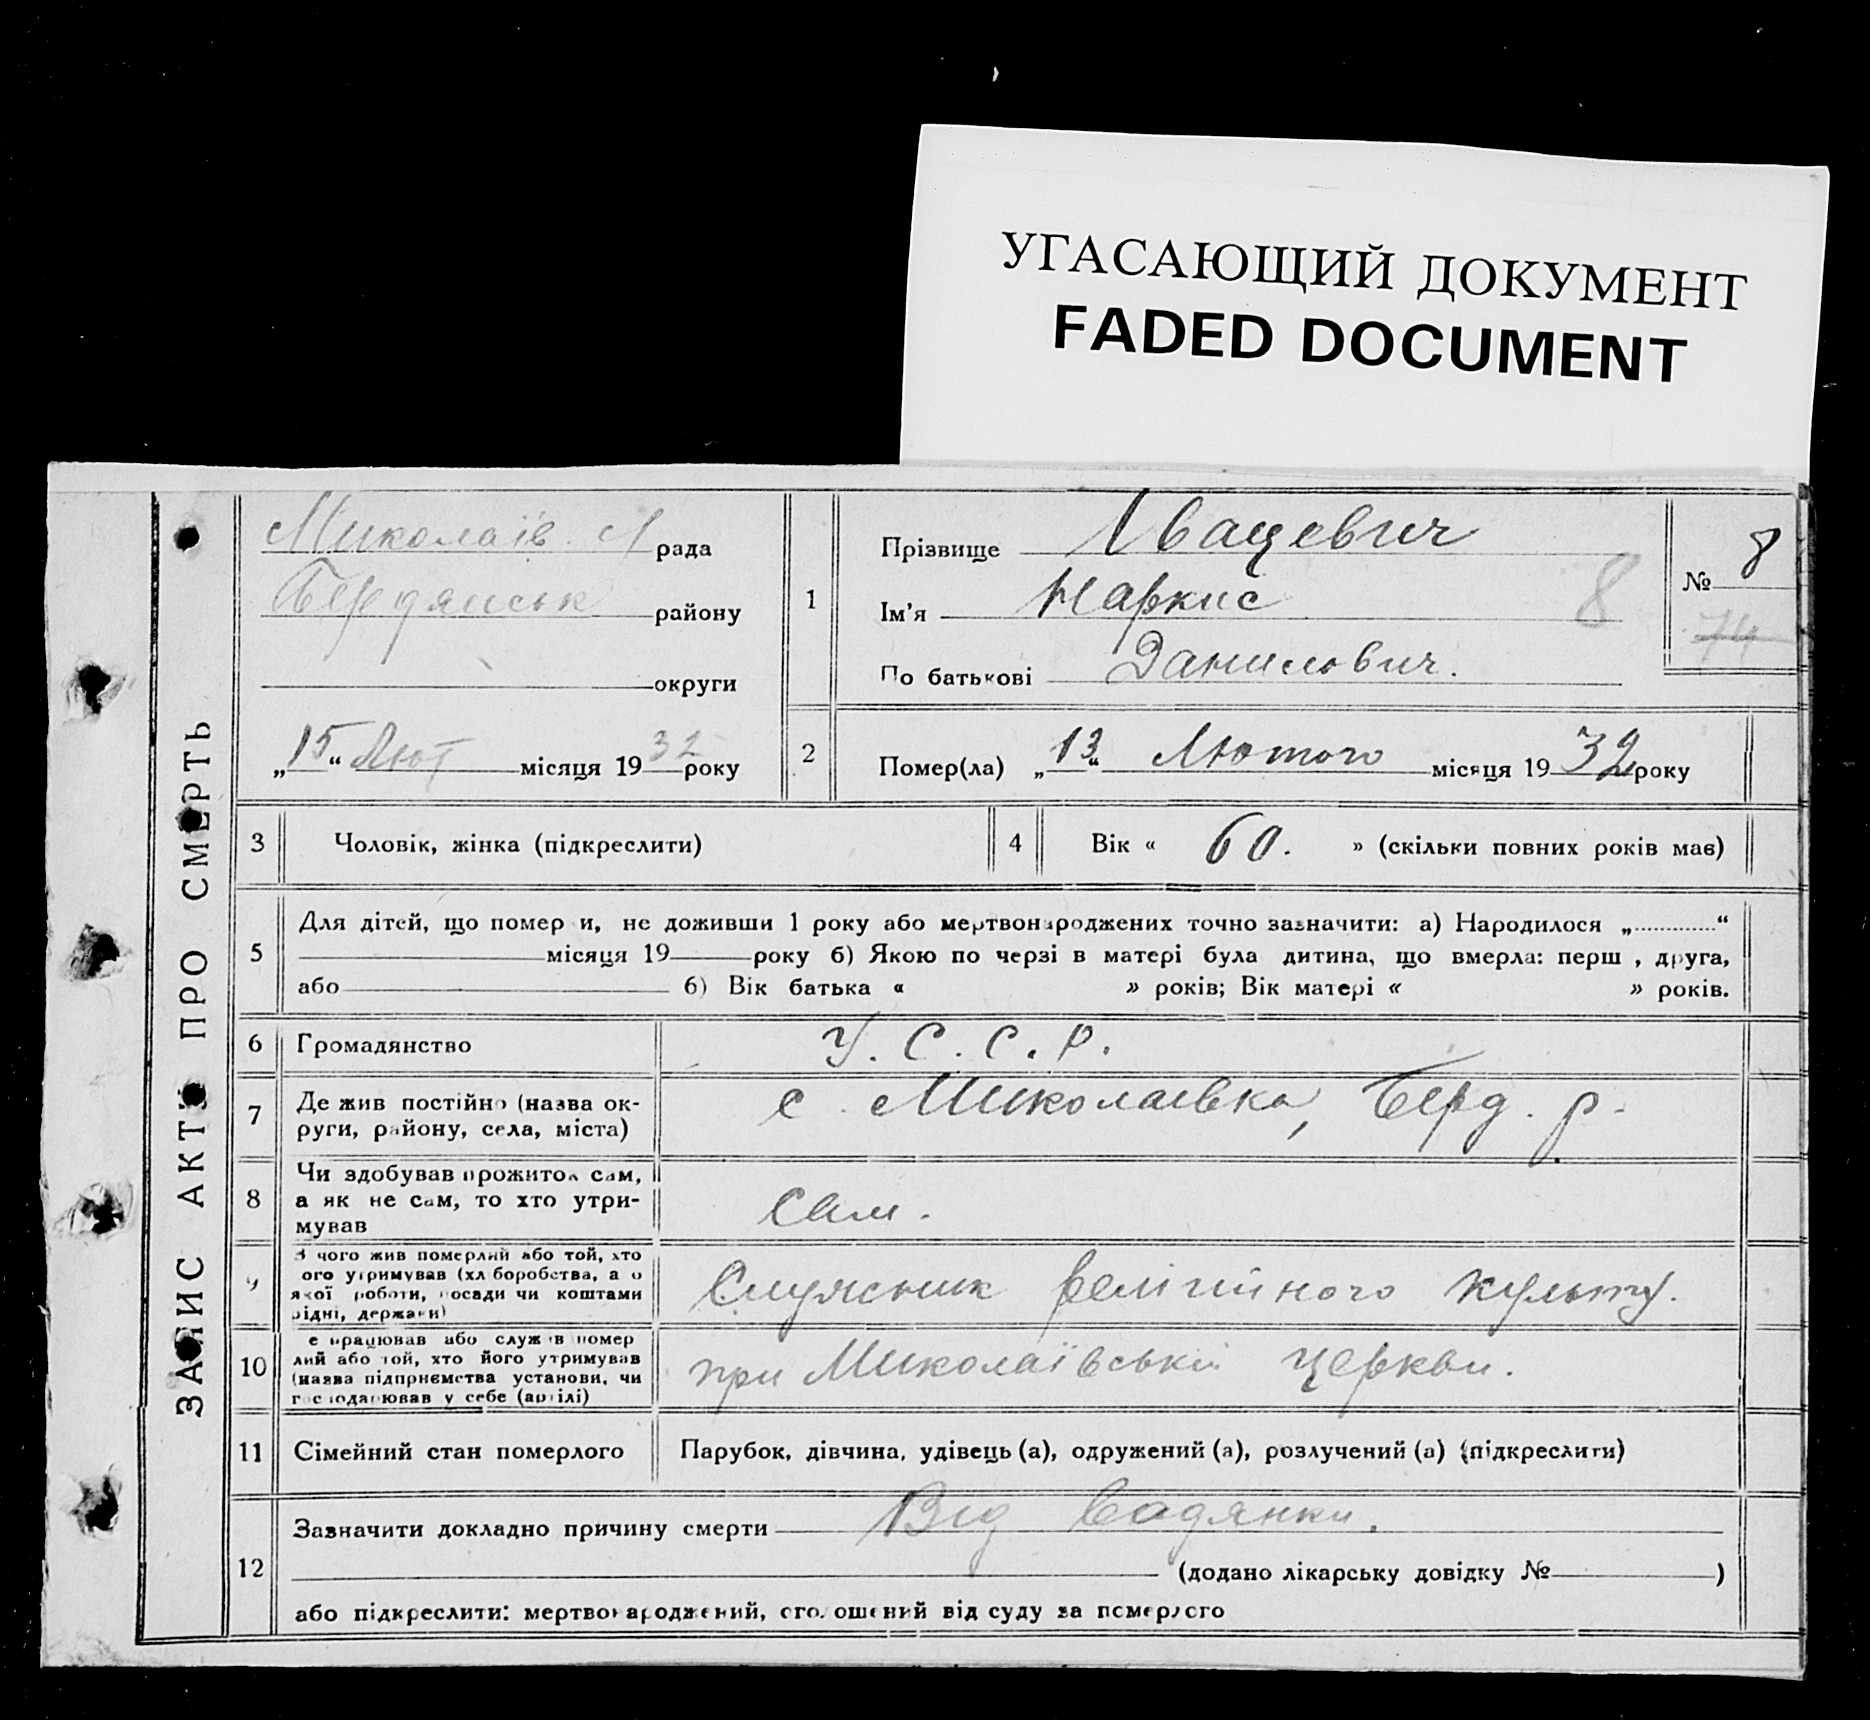 УГАСАЮЩИЙ ДОКУМЕНТ
FADED DOCUMENT
ЗАПИС АКТУ ПРО СМЕРТЬ
Миколаїв. рада
Бердянськ району
округи
„15“ Лют місяця 1932 року
1
Прізвище Івацевич
Ім'я Наркис 8
По батькові Данилович.
№ 8
74
2
Помер(ла) „13“ Лютого місяця 1932 року
3 Чоловік, жінка (підкреслити)
4 Вік « 60. » (скільки повних років має)
5 Для дітей, що померли, не доживши 1 року або мертвонароджених точно зазначити: а) Народилося „ “
місяця 19 року б) Якою по черзі в матері була дитина, що вмерла: перша, друга,
або б) Вік батька « » років; Вік матері « » років.
6 Громадянство У.С.С.Р.
7 Де жив постійно (назва ок-
руги, району, села, міста) с. Миколаївка, Берд. р.
8 Чи здобував прожиток сам,
а як не сам, то хто утри-
мував сам.
9 З чого жив померлий або той, хто
його утримував (хліборобства, або
якої роботи, посади чи коштами
рідні, держави) Служник релігійного культу.
10 Де працював або служив помер
лий або той, хто його утримував
(назва підприємства установи, чи
господарював у себе (артілі) при Миколаївській церкви.
11 Сімейний стан померлого Парубок, дівчина, удівець (а), одружений (а), розлучений (а) (підкреслити)
12 Зазначити докладно причину смерти Від водянки.
(додано лікарську довідку № )
або підкреслити: мертвонароджений, оголошений від суду за померлого